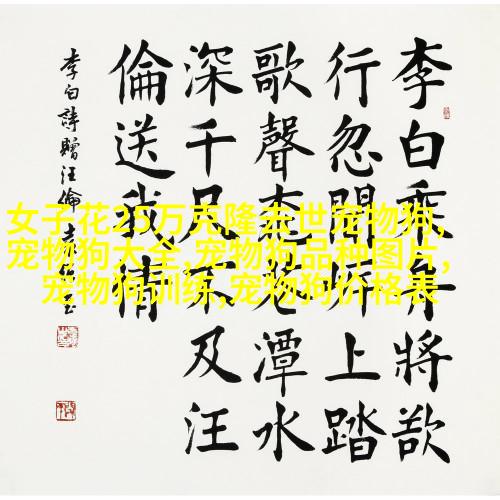 李白乘舟將欲
行忽聞岸上踏
歌聲桃花潭水
深千尺不及汪
倫送我情
李白詩贈汪倫
女子花25万克隆去世宠物狗,
宠物狗大全,宠物狗品种图片,
宠物狗训练,宠物狗价格表